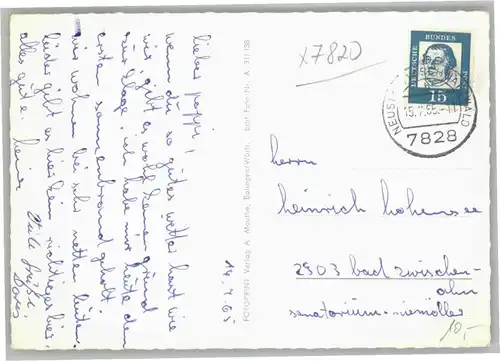 lieber pappi,
wenn du so gutes wetter hast wie
wir, gibt es wohl keinen grund
zur klage. ich habe mir heute den
ersten sonnenbrand geholt.
wir wohnen bei sehr netten leuten.
leider gibt es hier kein richtiges bier.
alles gute. deine
Viele Grüße
14.7.65
FOTOPRINT Verlag A. Mauthe, Echt Foto Nr. A 311/138
x7820
DEUTSCHE BUNDESPOST
15
NEUST
WALD
15.7.65
7828
herrn
heinrich hohensee
2903 bad zwischen-
ahn
sanatorium-niemöller
10,-